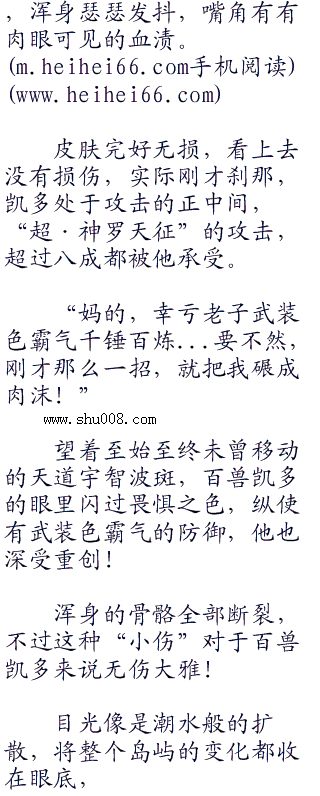 ，浑身瑟瑟发抖，嘴角有有
肉眼可见的血渍。
(m.heihei66.com手机阅读)
(www.heihei66.com)
皮肤完好无损，看上去
没有损伤，实际刚才刹那，
凯多处于攻击的正中间，
“超·神罗天征”的攻击，
超过八成都被他承受。
“妈的，幸亏老子武装
色霸气千锤百炼...要不然，
刚才那么一招，就把我碾成
肉沫！”
www.shu008.com
望着至始至终未曾移动
的天道宇智波斑，百兽凯多
的眼里闪过畏惧之色，纵使
有武装色霸气的防御，他也
深受重创！
浑身的骨骼全部断裂，
不过这种“小伤”对于百兽
凯多来说无伤大雅！
目光像是潮水般的扩
散，将整个岛屿的变化都收
在眼底，